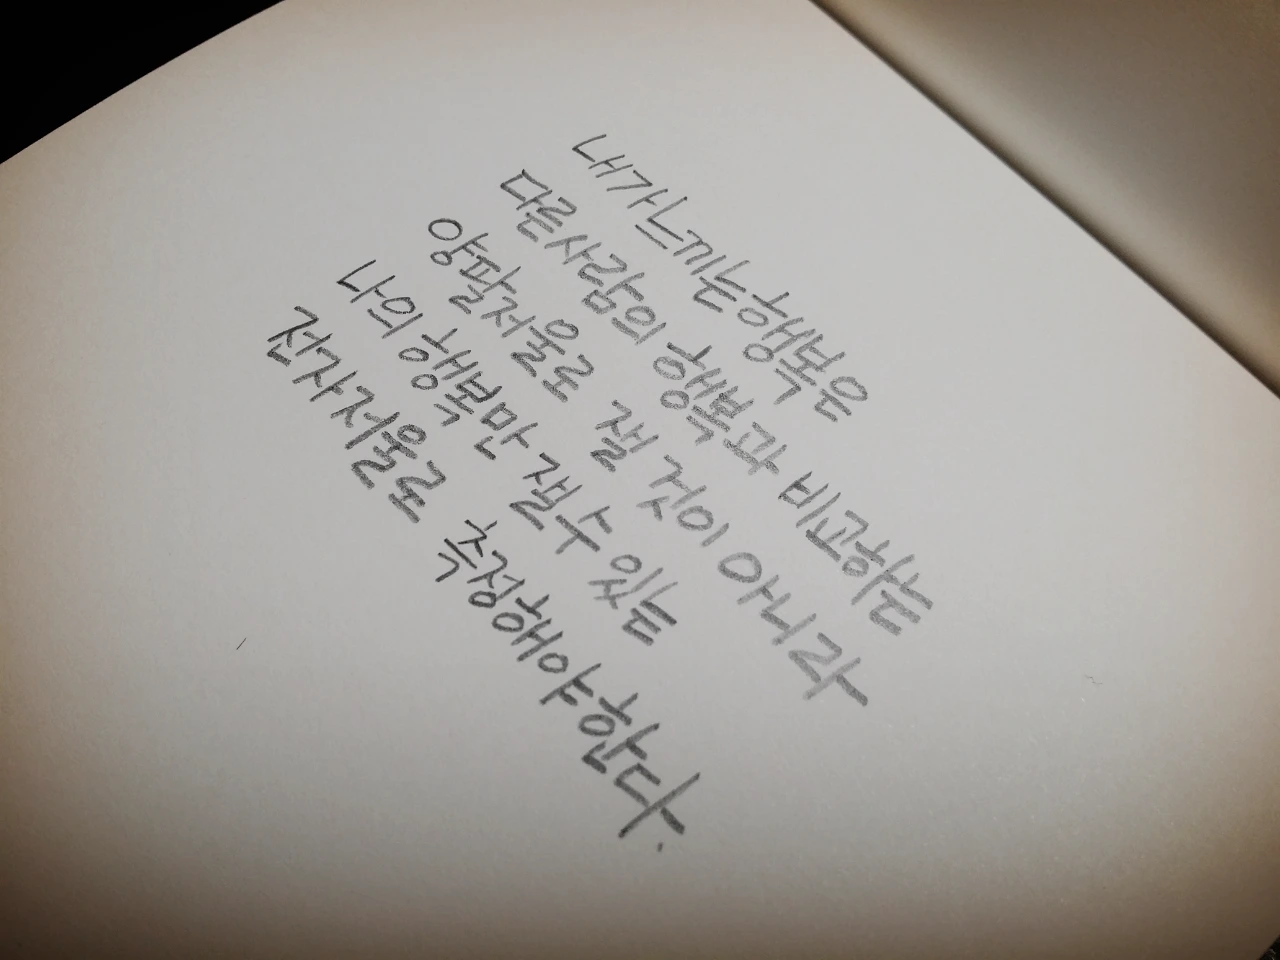 내가 느끼는 행복은
다른 사람의 행복과 비교하는
양팔저울로 잴 것이 아니라
나의 행복만 잴 수 있는
전자저울로 측정해야 한다.